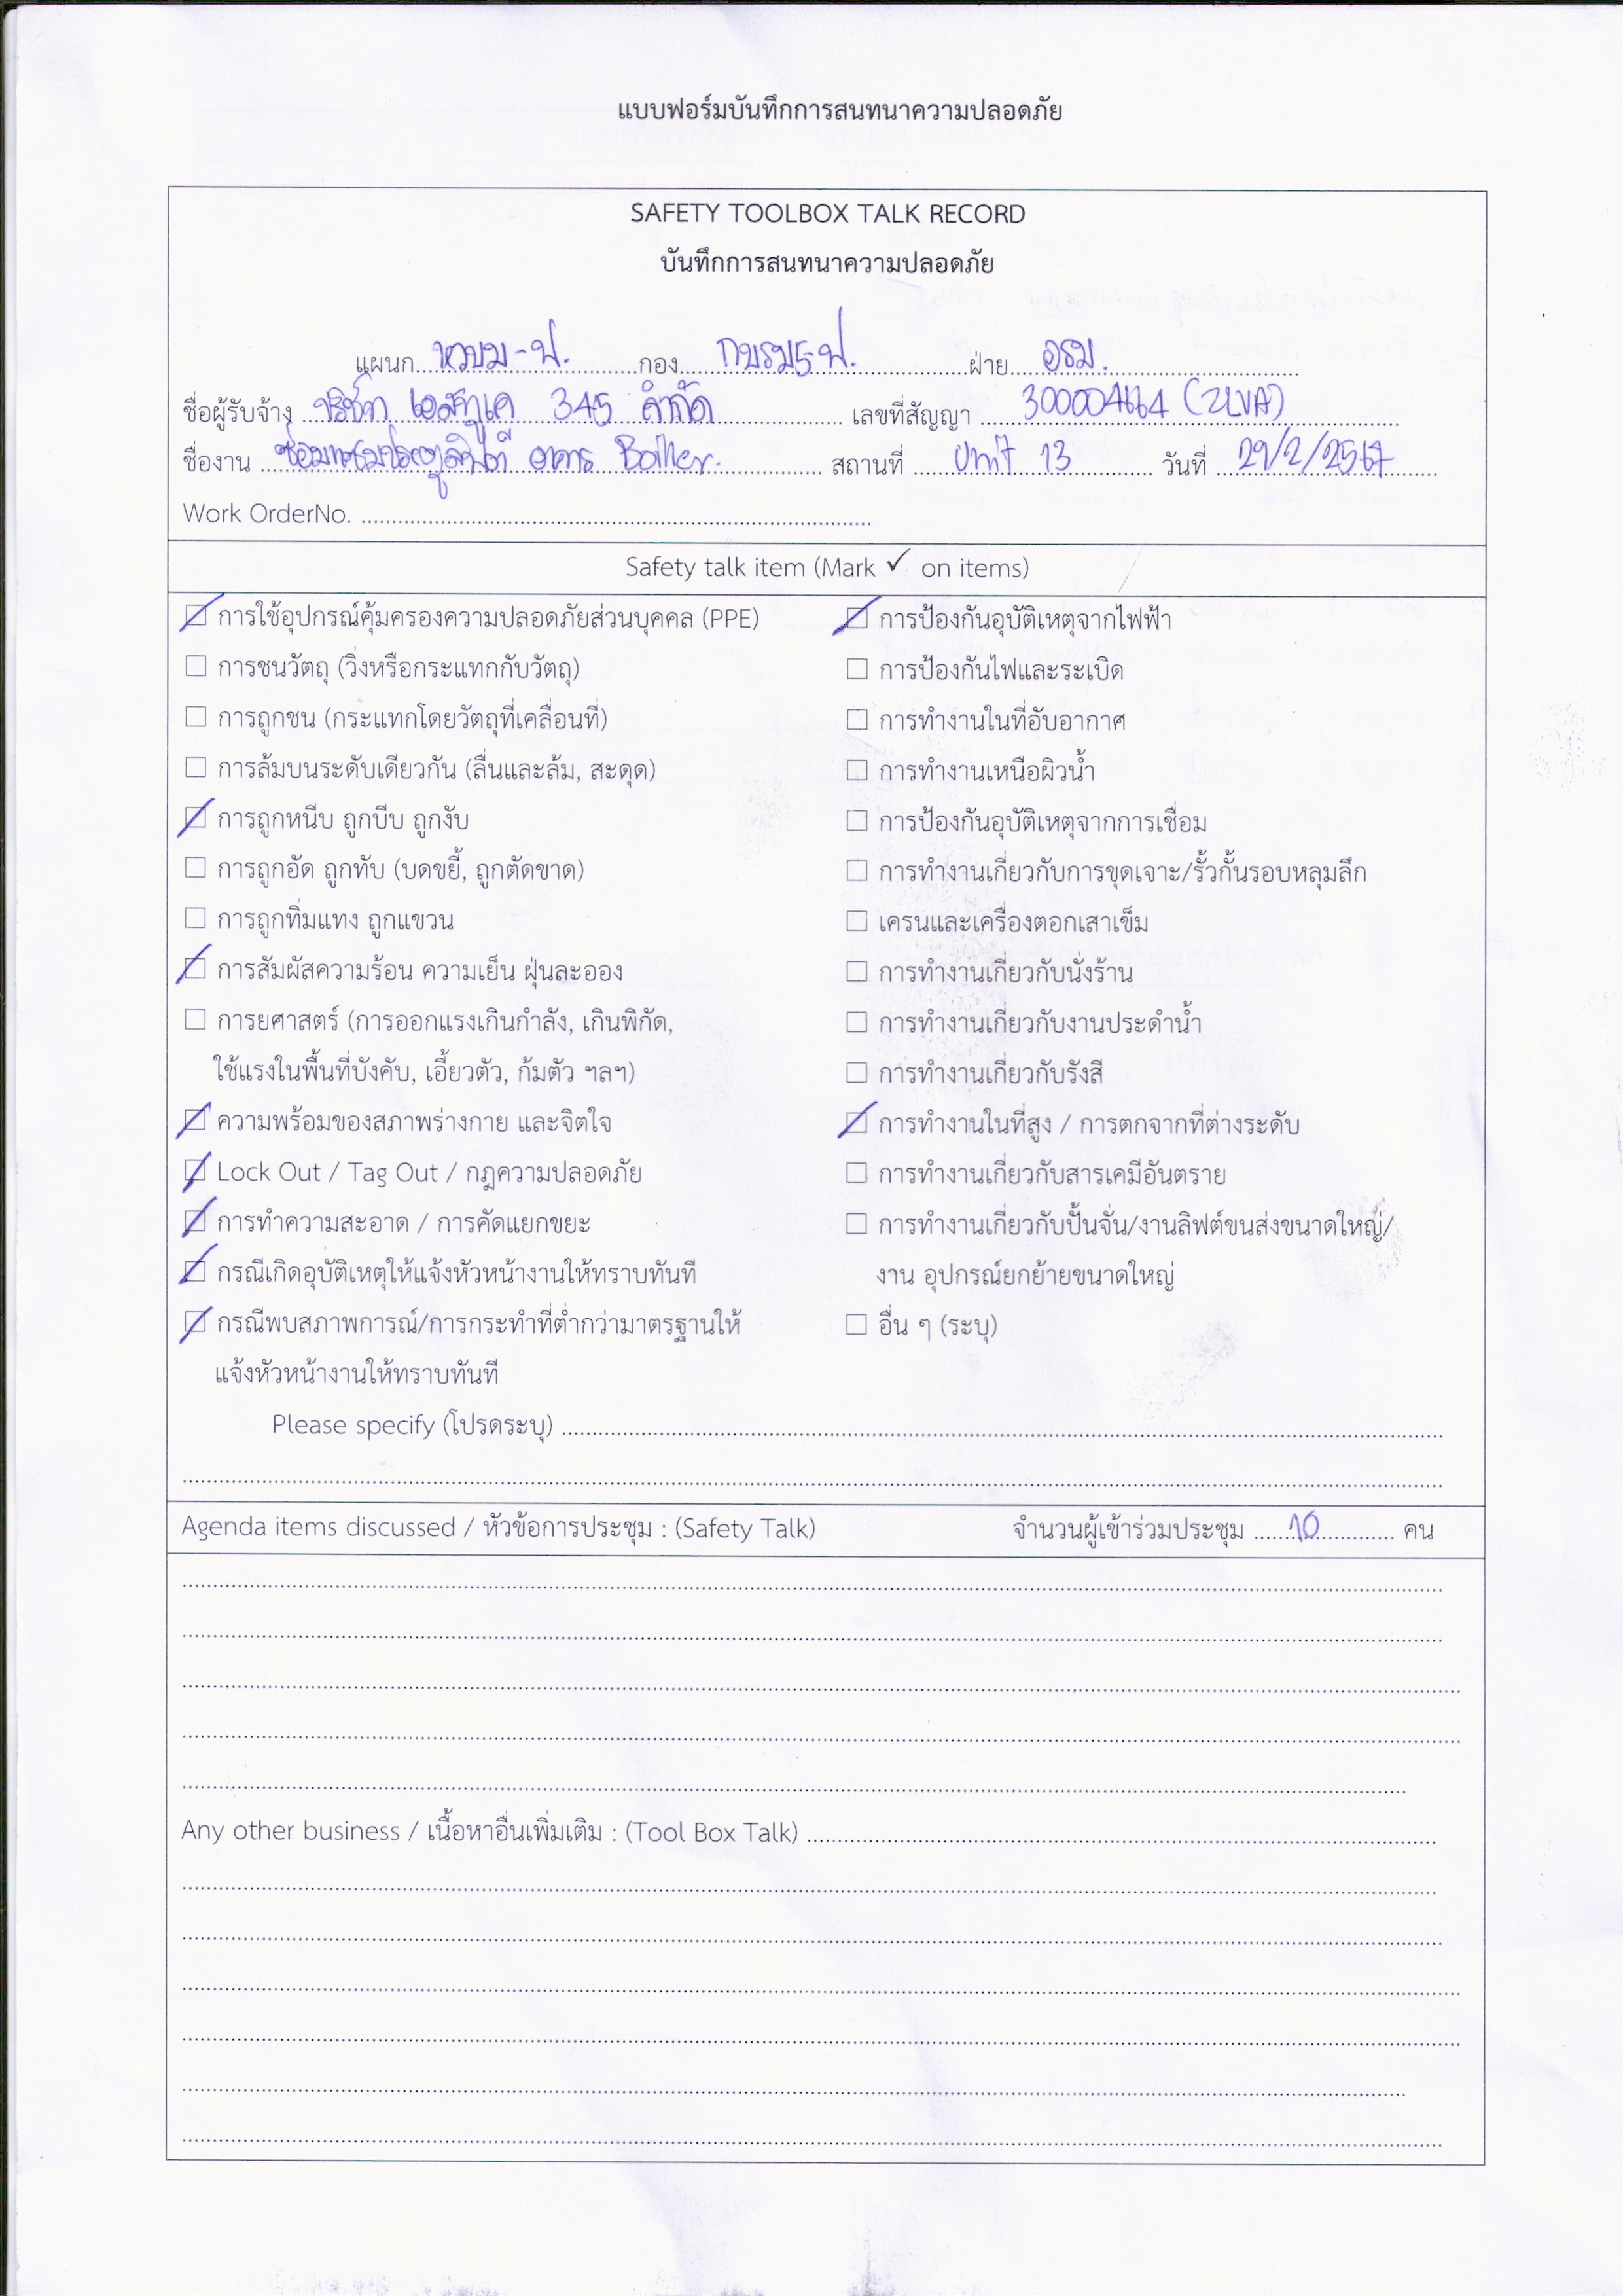 แบบฟอร์มบันทึกการสนทนาความปลอดภัย
SAFETY TOOLBOX TALK RECORD
บันทึกการสนทนาความปลอดภัย
แผนก หวบม-ฟ. กอง กบรม5-ฟ. ฝ่าย อรม.
ชื่อผู้รับจ้าง บริษัท 345 จำกัด เลขที่สัญญา (ZLVA)
ชื่องาน ซ่อมแซมประตูลิฟต์ อาคาร Boiler. สถานที่ Unit 13 วันที่ 29/2/2567
Work OrderNo.
Safety talk item (Mark ✓ on items)
☑ การใช้อุปกรณ์คุ้มครองความปลอดภัยส่วนบุคคล (PPE) ☑ การป้องกันอุบัติเหตุจากไฟฟ้า
☐ การชนวัตถุ (วิ่งหรือกระแทกกับวัตถุ) ☐ การป้องกันไฟและระเบิด
☐ การถูกชน (กระแทกโดยวัตถุที่เคลื่อนที่) ☐ การทำงานในที่อับอากาศ
☐ การล้มบนระดับเดียวกัน (ลื่นและล้ม, สะดุด) ☐ การทำงานเหนือผิวน้ำ
☑ การถูกหนีบ ถูกบีบ ถูกงับ ☐ การป้องกันอุบัติเหตุจากการเชื่อม
☐ การถูกอัด ถูกทับ (บดขยี้, ถูกตัดขาด) ☐ การทำงานเกี่ยวกับการขุดเจาะ/รั้วกั้นรอบหลุมลึก
☐ การถูกทิ่มแทง ถูกแขวน ☐ เครนและเครื่องตอกเสาเข็ม
☑ การสัมผัสความร้อน ความเย็น ฝุ่นละออง ☐ การทำงานเกี่ยวกับนั่งร้าน
☐ การยศาสตร์ (การออกแรงเกินกำลัง, เกินพิกัด, ☐ การทำงานเกี่ยวกับงานประดำน้ำ
ใช้แรงในพื้นที่บังคับ, เอี้ยวตัว, ก้มตัว ฯลฯ) ☐ การทำงานเกี่ยวกับรังสี
☑ ความพร้อมของสภาพร่างกาย และจิตใจ ☑ การทำงานในที่สูง / การตกจากที่ต่างระดับ
☑ Lock Out / Tag Out / กฎความปลอดภัย ☐ การทำงานเกี่ยวกับสารเคมีอันตราย
☑ การทำความสะอาด / การคัดแยกขยะ ☐ การทำงานเกี่ยวกับปั้นจั่น/งานลิฟต์ขนส่งขนาดใหญ่/
☑ กรณีเกิดอุบัติเหตุให้แจ้งหัวหน้างานให้ทราบทันที งาน อุปกรณ์ยกย้ายขนาดใหญ่
☑ กรณีพบสภาพการณ์/การกระทำที่ต่ำกว่ามาตรฐานให้ ☐ อื่น ๆ (ระบุ)
แจ้งหัวหน้างานให้ทราบทันที
Please specify (โปรดระบุ)
Agenda items discussed / หัวข้อการประชุม : (Safety Talk) จำนวนผู้เข้าร่วมประชุม 10 คน
Any other business / เนื้อหาอื่นเพิ่มเติม : (Tool Box Talk)